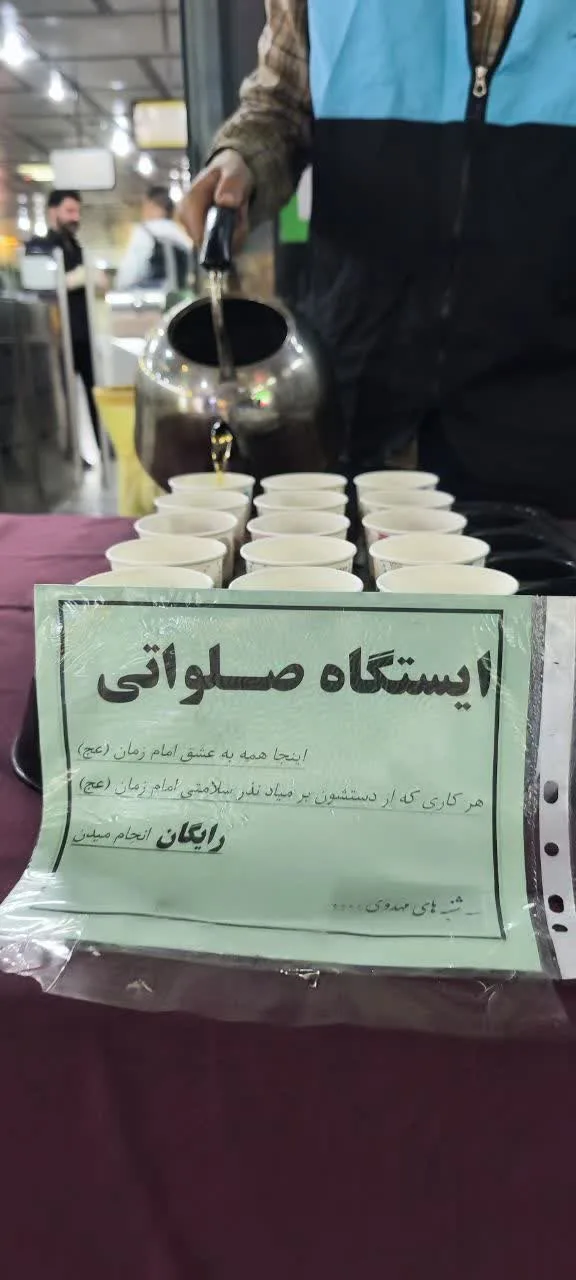 ایستگاه صلواتی
اینجا همه به عشق امام زمان (عج)
هر کاری که از دستشون بر میاد نذر سلامتی امام زمان (عج)
رایگان انجام میدن
های مهدوی....